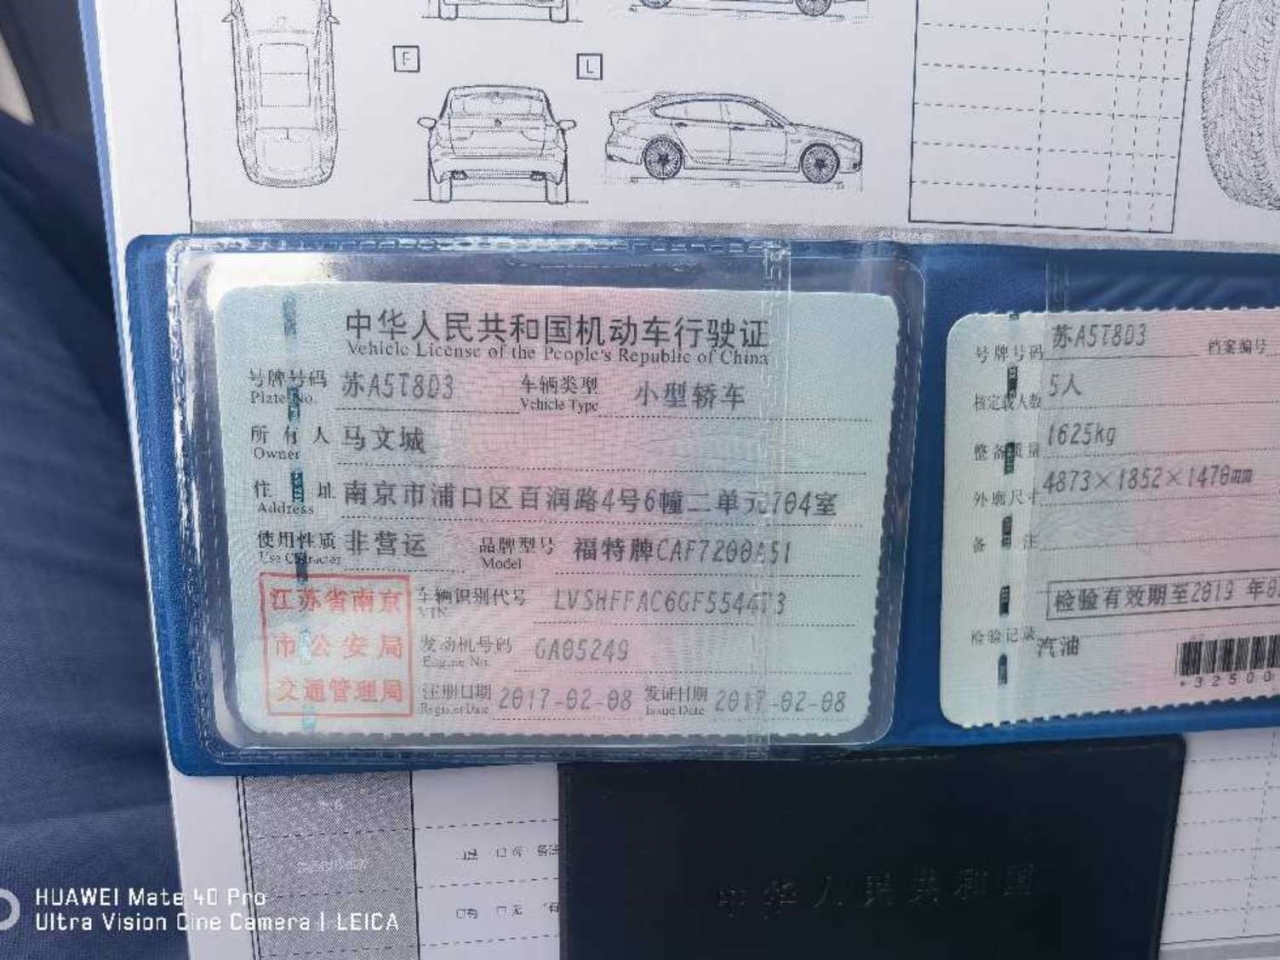 F
L
中华人民共和国机动车行驶证
Vehicle License of the People's Republic of China
号牌号码 苏A5T8D3 车辆类型 小型轿车
Plate No. Vehicle Type
所有人 马文城
Owner
住址 南京市浦口区百润路4号6幢二单元704室
Address
使用性质 非营运 品牌型号 福特牌CAF7200A51
Use Character Model
江苏省南京
市公安局
交通管理局
车辆识别代号
VIN
发动机号码 GA05249
Engine No.
注册日期 2017-02-08 发证日期 2017-02-08
Register Date Issue Date
号牌号码 苏A5T8D3 档案编号
核定载人数 5人
整备质量 1625kg
外廓尺寸 4873×1852×1470mm
备注
检验有效期至2019 年
检验记录
汽油
*32500
中华人民共和国
HUAWEI Mate 40 Pro
Ultra Vision Cine Camera | LEICA